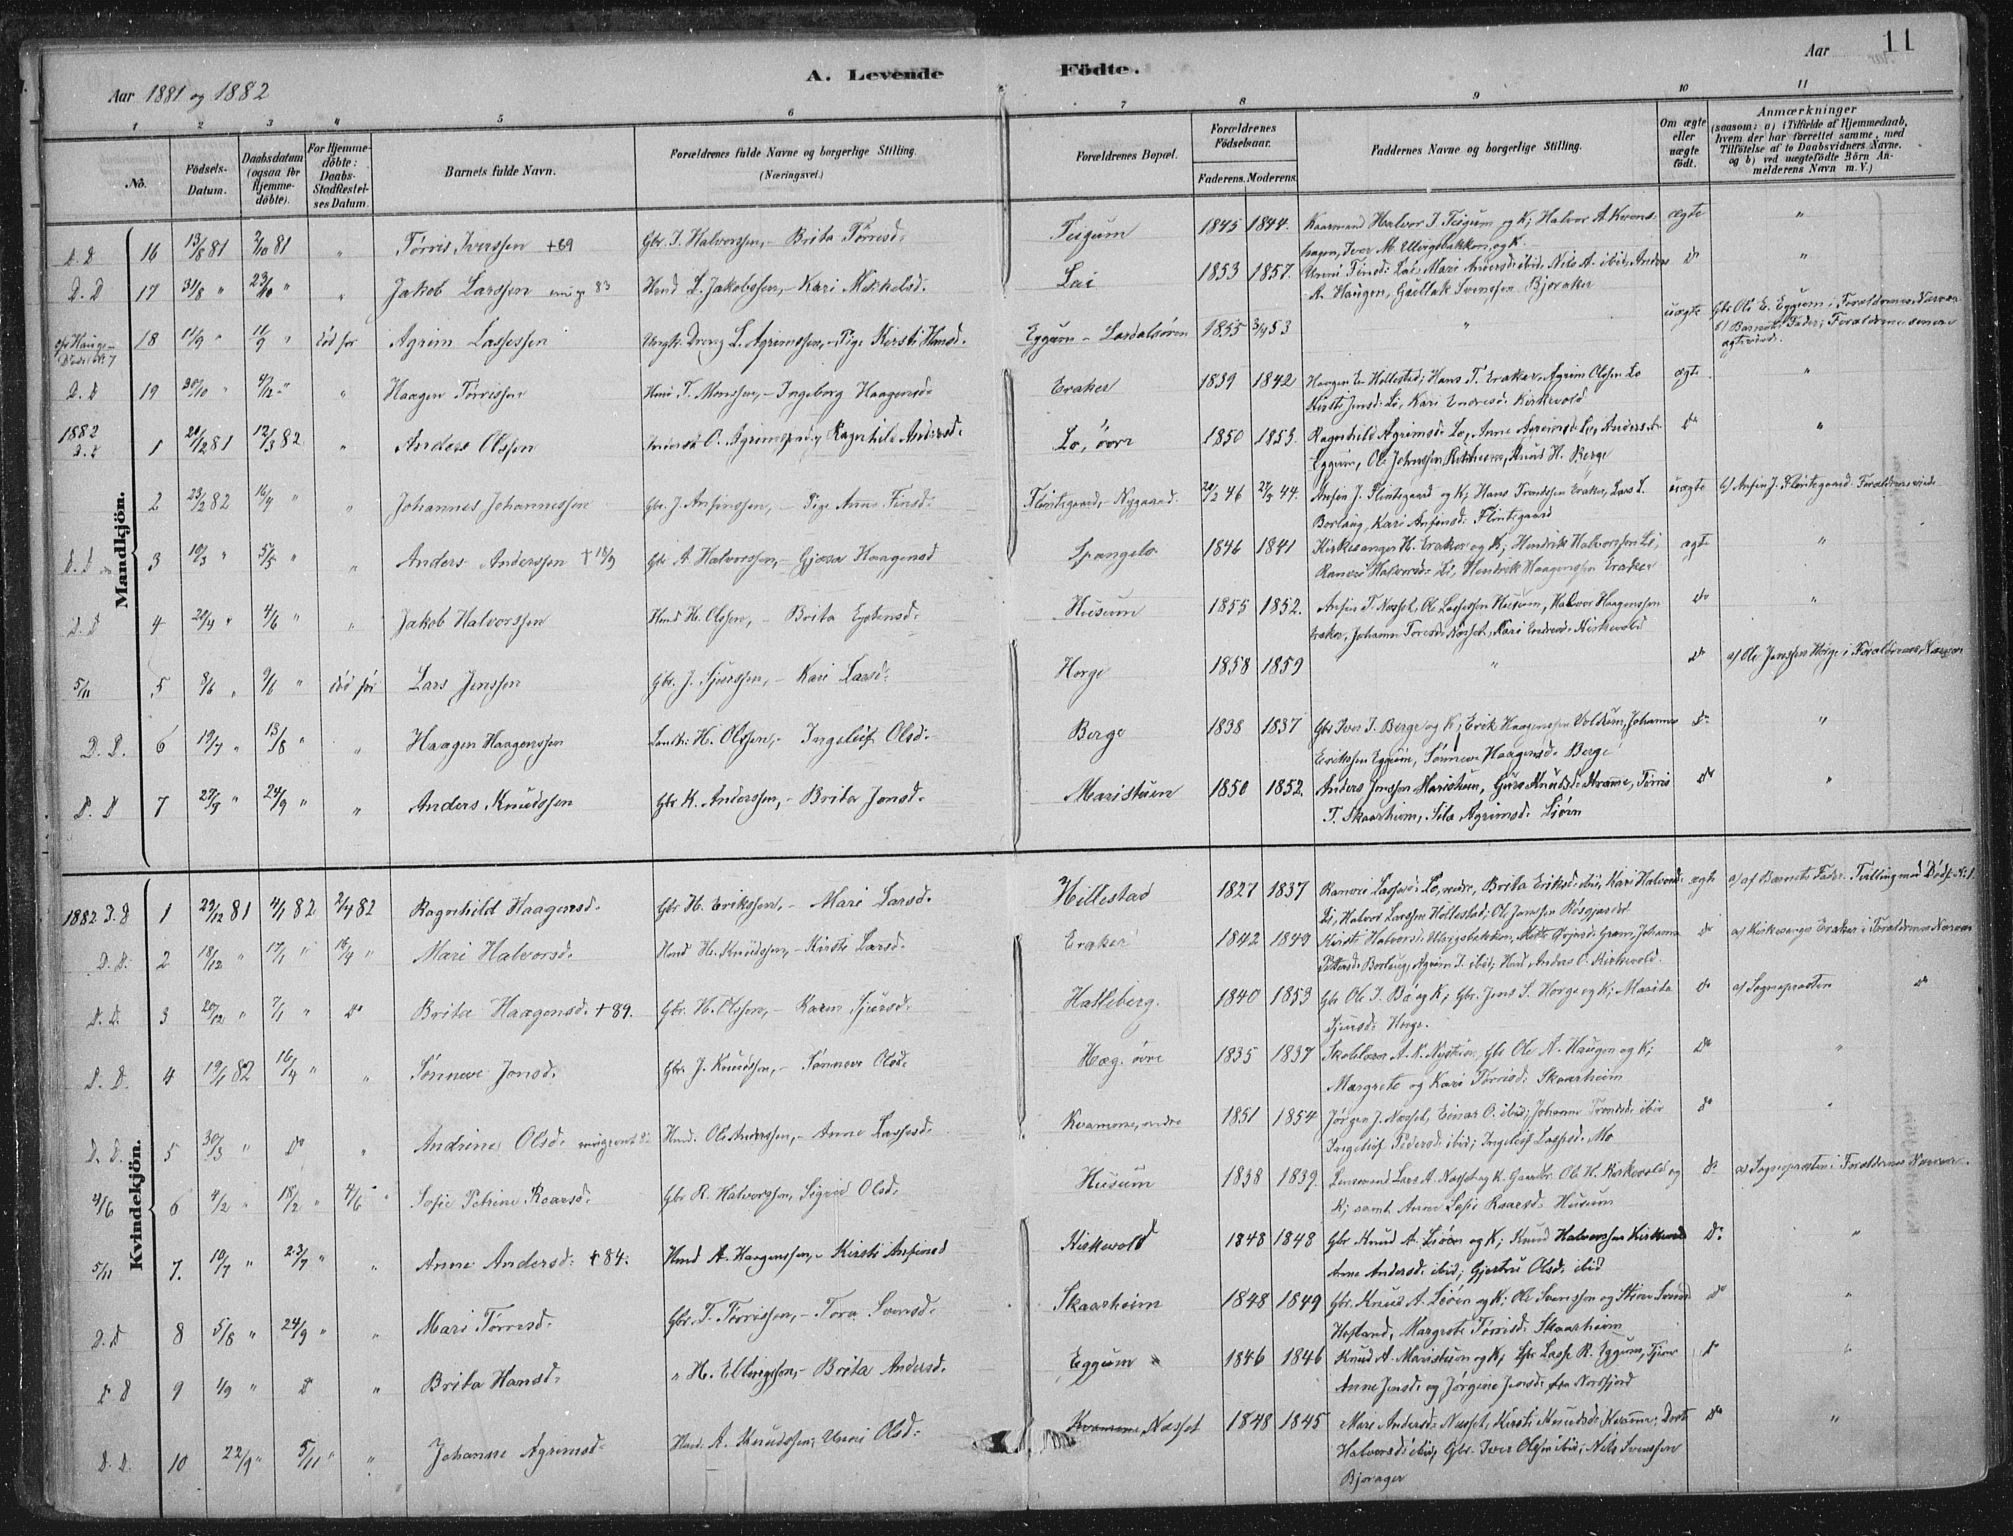 Aar 1881 og 1882
A. Levende Födte.
Aar
11
1 2 3 4 5 6 7 8 9 10 11
No.
Födsels-Datum.
Daabsdatum (ogsaa for Hjemme-döbte).
For Hjemme-döbte: Daabs-Stadfæstel-ses Datum.
Barnets fulde Navn.
Forældrenes fulde Navne og borgerlige Stilling. (Næringsvei.)
Forældrenes Bopæl.
Forældrenes Födselsaar.
Faderens. Moderens.
Faddernes Navne og borgerlige Stilling.
Om ægte eller uægte födt.
Anmærkninger (saasom: a) i Tilfælde af Hjemmedaab, hvem der har forrettet samme, med Tilföielse af to Daabsvidners Navne, og b) ved uægtefödte Börn An-melderens Navn m. V.)
Mandkjön.
D. D 16 13/8 81 2/10 81 " Tørris Iverssen +89 Gbr. I. Halvorssen, - Brita Tørresd: Teigum 1845 1844. Kaarmand Halvor I. Teigum og K; Halvor A. ægte "
hagen, Iver M. og K.
D. D 17 31/8 " 23/10 " " Jakob Larssen 83 Hmd L. Jakobssen, - Kari Mikkelsd. Lai 1853 1857. Lai, Mari ibid, Nils A. ibid, Anders do "
A. Haugen, Svenssen Bjoraker
18 11/9 " 11/9 " død før Agrim Lassessen L. Agrimssen, - Pige Kersti Eggum - Lærdalsøren 1855 3/4 53 " uægte Gbr Ole E. Eggum i Forældrenes Nærvær
b) Barnets Fader; Forældrene senere
D. D 19 30/10 " 4/12 " " Haagen Tørrissen Hmd T. Monssen, - Ingeborg Haagensd: Eraker 1839 1842 Haagen E. Hillestad; Hans T. Eraker, Agrim Olssen Lo ægte "
Kirsti Jensd: Li, Kari Endresd: Kirkevold
1882
D. D 1 21/12 81 12/3 82 " Anders Olssen O. Agrimssen, Ragnhild Andersd: Lo, øvre 1850 1853. Ragnhild Agrimsd: Lo, Anne Agrimsd: Lo, Anders A. do "
Eggum, Ole Johnssen Knud H. Berge
2 23/2 82 16/4 " " Johannes Johannessen Gbr. J. Anfinssen, - Pige Anne Finsd: Flintegaard, Nygaard. 20/2 46 27/8 44. Anfin J. Flintegaard og K; Hans Trondssen Eraker, Lars L. uægte b) Anfin J. Flintegaard.
Borlaug, Kari Anfinsd: Flintegaard
D. D 3 10/3 " 5/5 " " Anders Anderssen + 18/9 Gbr A. Halvorssen, - Gjøra Haagensd Spangelo 1846 1841 Kirkesanger H. Eraker og K; Hendrik Halvorssen Li, ægte "
Ranvei Halvorsd: Li, Hendrik Haagenssen Eraker
D. D 4 20/4 " 4/6 " " Jakob Halvorssen Hmd H. Olssen, - Brita Husum 1855 1852. Anfin T. Næsset, Ole Lassessen Husum, Halvor Haagenssen do "
Eraker, Johanne Toresd: Næsset, Kari Endresd: Kirkevold
5/11 5 8/6 " 9/6 " død før Lars Jenssen Gbr. J. Sjurssen, - Kari Larsd: Horge 1858 1859 " do a) Ole Jenssen Horge i Forældrenes Nærvær
D. D. 6 19/7 " 13/8 " " Haagen Haagenssen H. Olssen, - Ingeleif Olsd: Berge 1838 1837 Gbr Iver I. Berge og K; Erik Haagenssen Voldum, Johannes do "
Erikssen Eggum, Sønneve Haagensd: Berge
D. D 7 27/9 " 24/9 " " Anders Knudssen Gbr K. Anderssen, - Brita Jonsd: Maristuen 1850 1852. Anders Jenssen Maristuen, Guro Knudsd: Kvamme, Tørris do "
T. Skaarheim, Sila Agrimsd: Ljøen
Kvindekjön.
1882 D. D 1 29/12 81 4/1 82 2/4 82 Ragnhild Haagensd: Gbr H. Erikssen, - Mari Larsd: Hillestad 1827 1837 Ranvei Lassesd: Lo, nedre, Brita Eriksd: ibid, Kari Halvorsd: ægte a) af Barnets Fader. Tvilling med Dødf. No 1.
Li, Halvor Larssen Hillestad; Ole Jonssen
D. D. 2 18/12 " 17/1 " 16/4 " Mari Halvorsd: Hmd H. Knudssen, - Kirsti Larsd: Eraker 1842 1849 Kirsti Halvorsd: Johanne do a) Kirkesanger Eraker i Forældrenes Nærvær
Pettersd: Borlaug, Agrim J. ibid; Hmd Anders O. Kirkevold.
D. D. 3 20/12 " 7/1 " do Brita Haagensd: +89. Gbr. H. Olssen, - Karen Sjursd: Hatleberg. 1840 1853 Gbr Ole I. Bø og K; Gbr. Jens S. Horge og K; Marita do a) Sognepresten do
Sjursd: Horge.
D. D. 4 19/1 82 16/4 " " Sønneve Jonsd: Gbr. J. Knudssen, - Sønneve Olsd: Hæg, øvre 1835 1837 Skolelærer A. K. Nystuen, Gbr Ole A. Haugen og K; do "
Margrete og Kari Tørrisd: Skaarheim
D. D. 5 30/3 " do " Andrine Olsd: emigrant Hmd. Ole Anderssen, - Anne Lassesd: Kvamme, nedre 1851 1854 Jørgen J. Næsset, Einar O. ibid; Johanne Trondsd: ibid do "
Ingeleif Pedersd: ibid; Ingeleif Lassesd: Mo
4/6 6 4/2 " 18/2 " 4/6 " Sofie Petrine Roarsd: Gbr R. Halvorssen, Sigrid Olsd: Husum 1838 1839. Lensmand Lars A. Næsset og K. Gaardbr. Ole H. Kirkevold og do a) Sognepresten i Forældrenes Nærvær.
K; samt Anne Sofie Roarsd: Husum
5/11 7. 10/7 " 23/7 " " Anne Andersd: +84. Hmd A. Haagenssen, - Kirsti Anfinsd Kirkevold 1848 1848 Gbr Knud A. Ljøen og K; Knud Halvorssen Kirkevold do "
Anne Andersd: ibid; Gjertru Olsd: ibid
D. D 8 5/8 " 24/9 " " Mari Tørresd: Gbr T. Tørrissen, - Tora Svensd: Skaarheim 1848 1849 Gbr. Knud A. Ljøen og K; Ole Svenssen og
Hofland, Margrete Tørrisd: Skaarheim
D D 9 1/9 " D " Brita Hansd: " H. Ellingssen, - Brita Andersd: Eggum 1846 1846 Knud A. Maristuen og K; Lasse R. Eggum, do "
Anne Jensd: og Jørgine Jensd: fra Nordfjord
D. D. 10 22/9 " 5/11 " " Johanne Agrimsd: Hmd. A. Knudssen, Unni Olsd: Kvamme Næsset 1848 1845 Mari Andersd: Næsset, Kirsti Knudsd: Kvamme, do "
Halvorsd: ibid, Gbr. Iver Olssen ibid; Nils Svenssen
Bjorager